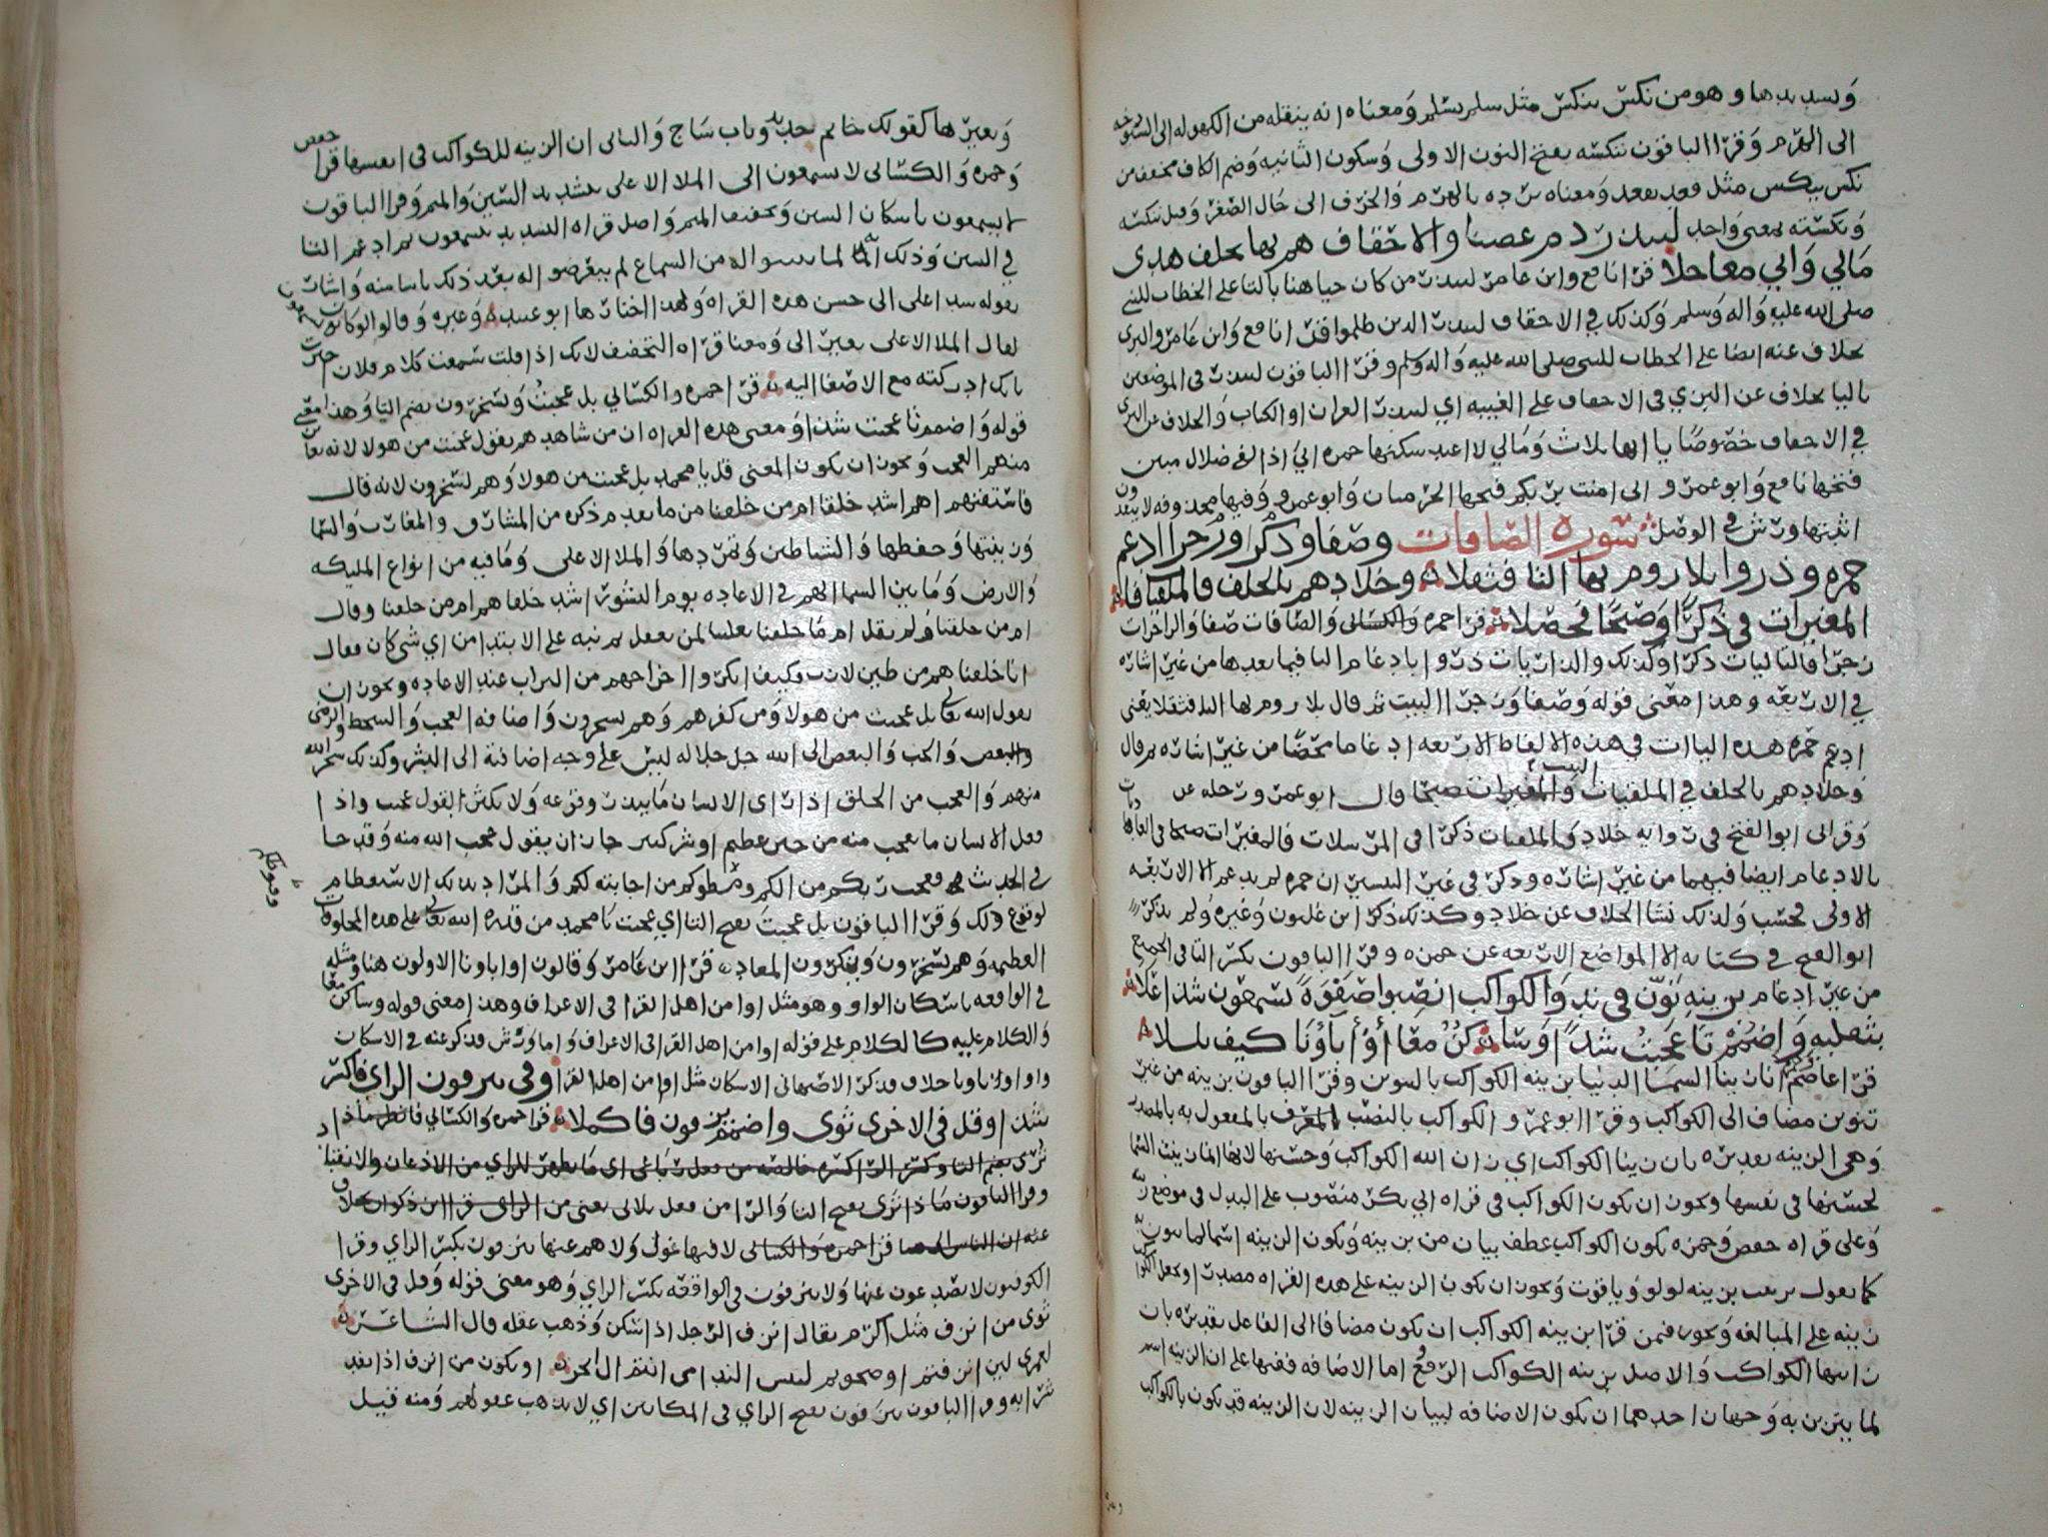 وتشديدها وهو من نكس ينكس مثل سلم يسلم ومعناه انه ينقله من الكهولة الى الشيوخه
الى الهرم وقرا الباقون ننكسه بفتح النون الاولى وسكون الثانيه وضم الكاف مخففه من
نكس ينكس مثل قعد يقعد ومعناه نرده بالهرم والخرف الى حال الصغر وقيل ننكسه
وننكسه بمعنى واحد لينذر دم غصنا والاحقاف هم بها بخلف هدى
مالي واني معا حلا قرا نافع وابن عامر لتنذر من كان حيا هنا بالتا على الخطاب للنبي
صلى الله عليه واله وسلم وكذلك في الاحقاف لتنذر الذين ظلموا قرا نافع وابن عامر والبزي
بخلاف عنه ايضا على الخطاب للنبي صلى الله عليه واله وسلم وقرا الباقون لينذر في الموضعين
باليا بخلاف عن البزي في الاحقاف على الغيبه اي لينذر القران او الكتاب والخلاف عن البزي
في الاحقاف خصوصا يا اتها ثلاث ومالي لا اعبد سكنها حمزه اني اذا لفي ضلال مبين
فتحها نافع وابو عمرو اني امنت بربكم فتحها الحرميان وابو عمرو وفيها محذوفه لا ينقذون
اثبتها ورش في الوصل سورة الصافات وصفا وذكرا وزجرا ادغم
حمزه وذروا بلا روم بها التا فثقلا وخلادهم بالخلف فالملقيات فا
المغيرات في ذكرا وصبحا فحصلا قرا حمزه والصافات صفا والزاجرات
زجرا فالتاليات ذكرا وكذلك والذاريات ذروا بادغام التا فيما بعدها من غير اشاره
في الاربعه وهذا معنى قوله وصفا وزجرا البيت ثم قال بلا روم بها التا فثقلا يعني
ادغم حمزه هذه التاات في هذه الالفاظ الاربعه ادغاما محضا من غير اشاره ثم قال
وخلادهم بالخلف في الملقيات البيت قال ابو عمرو رحله
وقراتي ابو الفتح في روايه خلاد والملقيات ذكرا في المرسلات فالمغيرات صبحا في العاديات
بالادغام ايضا فيهما من غير اشاره وذكر في غير التيسير ان حمزه لم يدغم الا الاربعه
الاولى فحسب ولذلك نشا الخلاف عن خلاد وكذلك ذكر ابن غلبون وغيره ولم يذكر
ابو الفتح في كتابه الا المواضع الاربعه عن حمزه وقرا الباقون بكسر التا في الجميع
من غير ادغام بزينة نون في ند والكواكب انصبوا صفوة يسمعون شذا علا
بثقليه واضمم تا عجبت شذا وساكن معا او اباؤنا كيف بللا
قرا عاصم وحمزه انا زينا السما الدنيا بزينه الكواكب بالتنوين وقرا الباقون بزينه من غير
تنوين مضاف الى الكواكب وقرا ابو عمرو الكواكب بالنصب المعرف بالمفعول به بالمصدر
وهي الزينه تقديره بان زينا الكواكب اي زان الله الكواكب وحسنها لانها انما زينت السما
لحسنها في نفسها ويجوز ان تكون الكواكب في قراه ابي بكر منصوب على البدل في موضع بزينه
وعلى قراه حفص وحمزه تكون الكواكب عطف بيان من بزينه وتكون الزينه اسما لما
كما يقول بزينه لولو وياقوت ويجوز ان تكون الزينه على هذه القراه مصدرا وتجعل الكواكب
زينه على المبالغه ويجوز فيمن قرا بزينه الكواكب ان تكون مضافا الى الفاعل تقديره بان
زانتها الكواكب والاصل بزينه الكواكب الرفع اما الاضافه ففيها على ان الزينه اسم
لما يتزين به وجهان احدهما ان تكون الاضافه لبيان الزينه لان الزينه قد تكون بالكواكب
وبغيرها كقولك خاتم حديد وباب ساج والثاني ان الزينه للكواكب في انفسها قرا حفص
وحمزه والكسائي لا يسمعون الى الملا الاعلى بتشديد السين والميم وقرا الباقون
لا يسمعون باسكان السين وتخفيف الميم واصل قراه التشديد يتسمعون ثم ادغم التا
في السين وذلك لما من السماع لم يتعرضوا له بعد ذلك ياسا منه واشار
بقوله شذا علا الى حسن هذه القراه ولهذا اختارها ابو عبيد وغيره وقالوا لو كان يسمعون
لقال الملا الاعلى بغير الى ومعنا قراه التخفيف لانك اذا قلت سمعت كلام فلان خبرت
بانك ادركته مع الاصغا اليه قرا حمزه والكسائي بل عجبت ويسخرون بضم التا وهذا معنى
قوله واضمم تا عجبت شذا ومعنى هذه القراه ان من شاهدهم يقول عجبت من هولا لانه
منهم العجب ويجوز ان يكون المعنى قل يا محمد بل عجبت من هولا وهم يسخرون لانه قال
فاستفتهم اهم اشد خلقا ام من خلقنا من ما تقدم ذكره من المشارق والمغارب والسما
وزينتها وحفظها والشياطين وتمردها والملا الاعلى وما فيه من انواع المليكه
والارض وما بين السما انهم في الاعاده يوم النشور اشد خلقا هم ام من خلقنا وقال
ام من خلقنا ولم يقل ام ما خلقنا تغليبا لمن يعقل ثم نبه على الابتدا من اي شي كان فقال
انا خلقناهم من طين لازب وكيف انكروا اخراجهم من التراب عند الاعاده ويجوز ان
يقول الله تعالى بل عجبت من هولا ومن كفرهم وهم يسخرون واضافه العجب والسخط والرضى
والبغض والحب والبعض الى الله جل جلاله ليس على وجه اضافته الى البشر وكذلك سخر الله
منهم والعجب من الخلق اذا راى الانسان ما يندر وقوعه ولا يكثر القول عجب واذا
فعل الانسان ما يعجب منه من خير عظيم او شر كبير جاز ان يقول عجب الله منه وقد جا
في الحديث عجب ربكم من الكم وقنوطكم من اجابته لكم والمراد بذلك الاستعظام
وقنوطكم
لوقوع ذلك وقرا الباقون بل عجبت بفتح التا اي عجبت يا محمد من قدره الله تعالى على هذه المخلوقات
العظيمه وهم يسخرون وينكرون المعاد قرا ابن عامر وقالون او اباونا الاولون هنا ومثله
في الواقعه باسكان الواو وهو مثل او امن اهل القرا في الاعراف وهذا معنى قوله وساكن معا
والكلام عليه كالكلام على قوله او امن اهل القرا في الاعراف واما ورش فذكر عنه في الاسكان
واو اباونا خلاف فذكر الاصبهاني الاسكان مثل او امن اهل القرا وفي ينزفون الزاي فاكسر
شذا وقل في الاخرى ثوى واضمم يزفون فاكملا قرا حمزه والكسائي فانظر ماذا
ترى بضم التا وكسر الرا كسره خالصه من فعل رباعي اي ما يظهر للراي من الاذعان والانقياد
وقرا الباقون ماذا ترى بفتح التا والرا من فعل ثلاثي يعني من الراي قرا ابن ذكوان بخلاف
عنه ان الياس قرا حمزه والكسائي لا فيها غول ولا هم عنها ينزفون بكسر الزاي وقرا
الكوفيون لا يصدعون عنها ولا ينزفون في الواقعه بكسر الزاي وهو معنى قوله وقل في الاخرى
ثوى من انزف مثل اكرم يقال انزف الرجل اذا سكر وذهب عقله قال الشاعر
لعمري لين انزفتم او صحوتم لبيس الندامى انتم ال ابجرا او يكون من انزف اذا نفد
شرابه وقرا الباقون ينزفون بفتح الزاي في المكانين اي لا يذهب عقولهم ومنه قيل